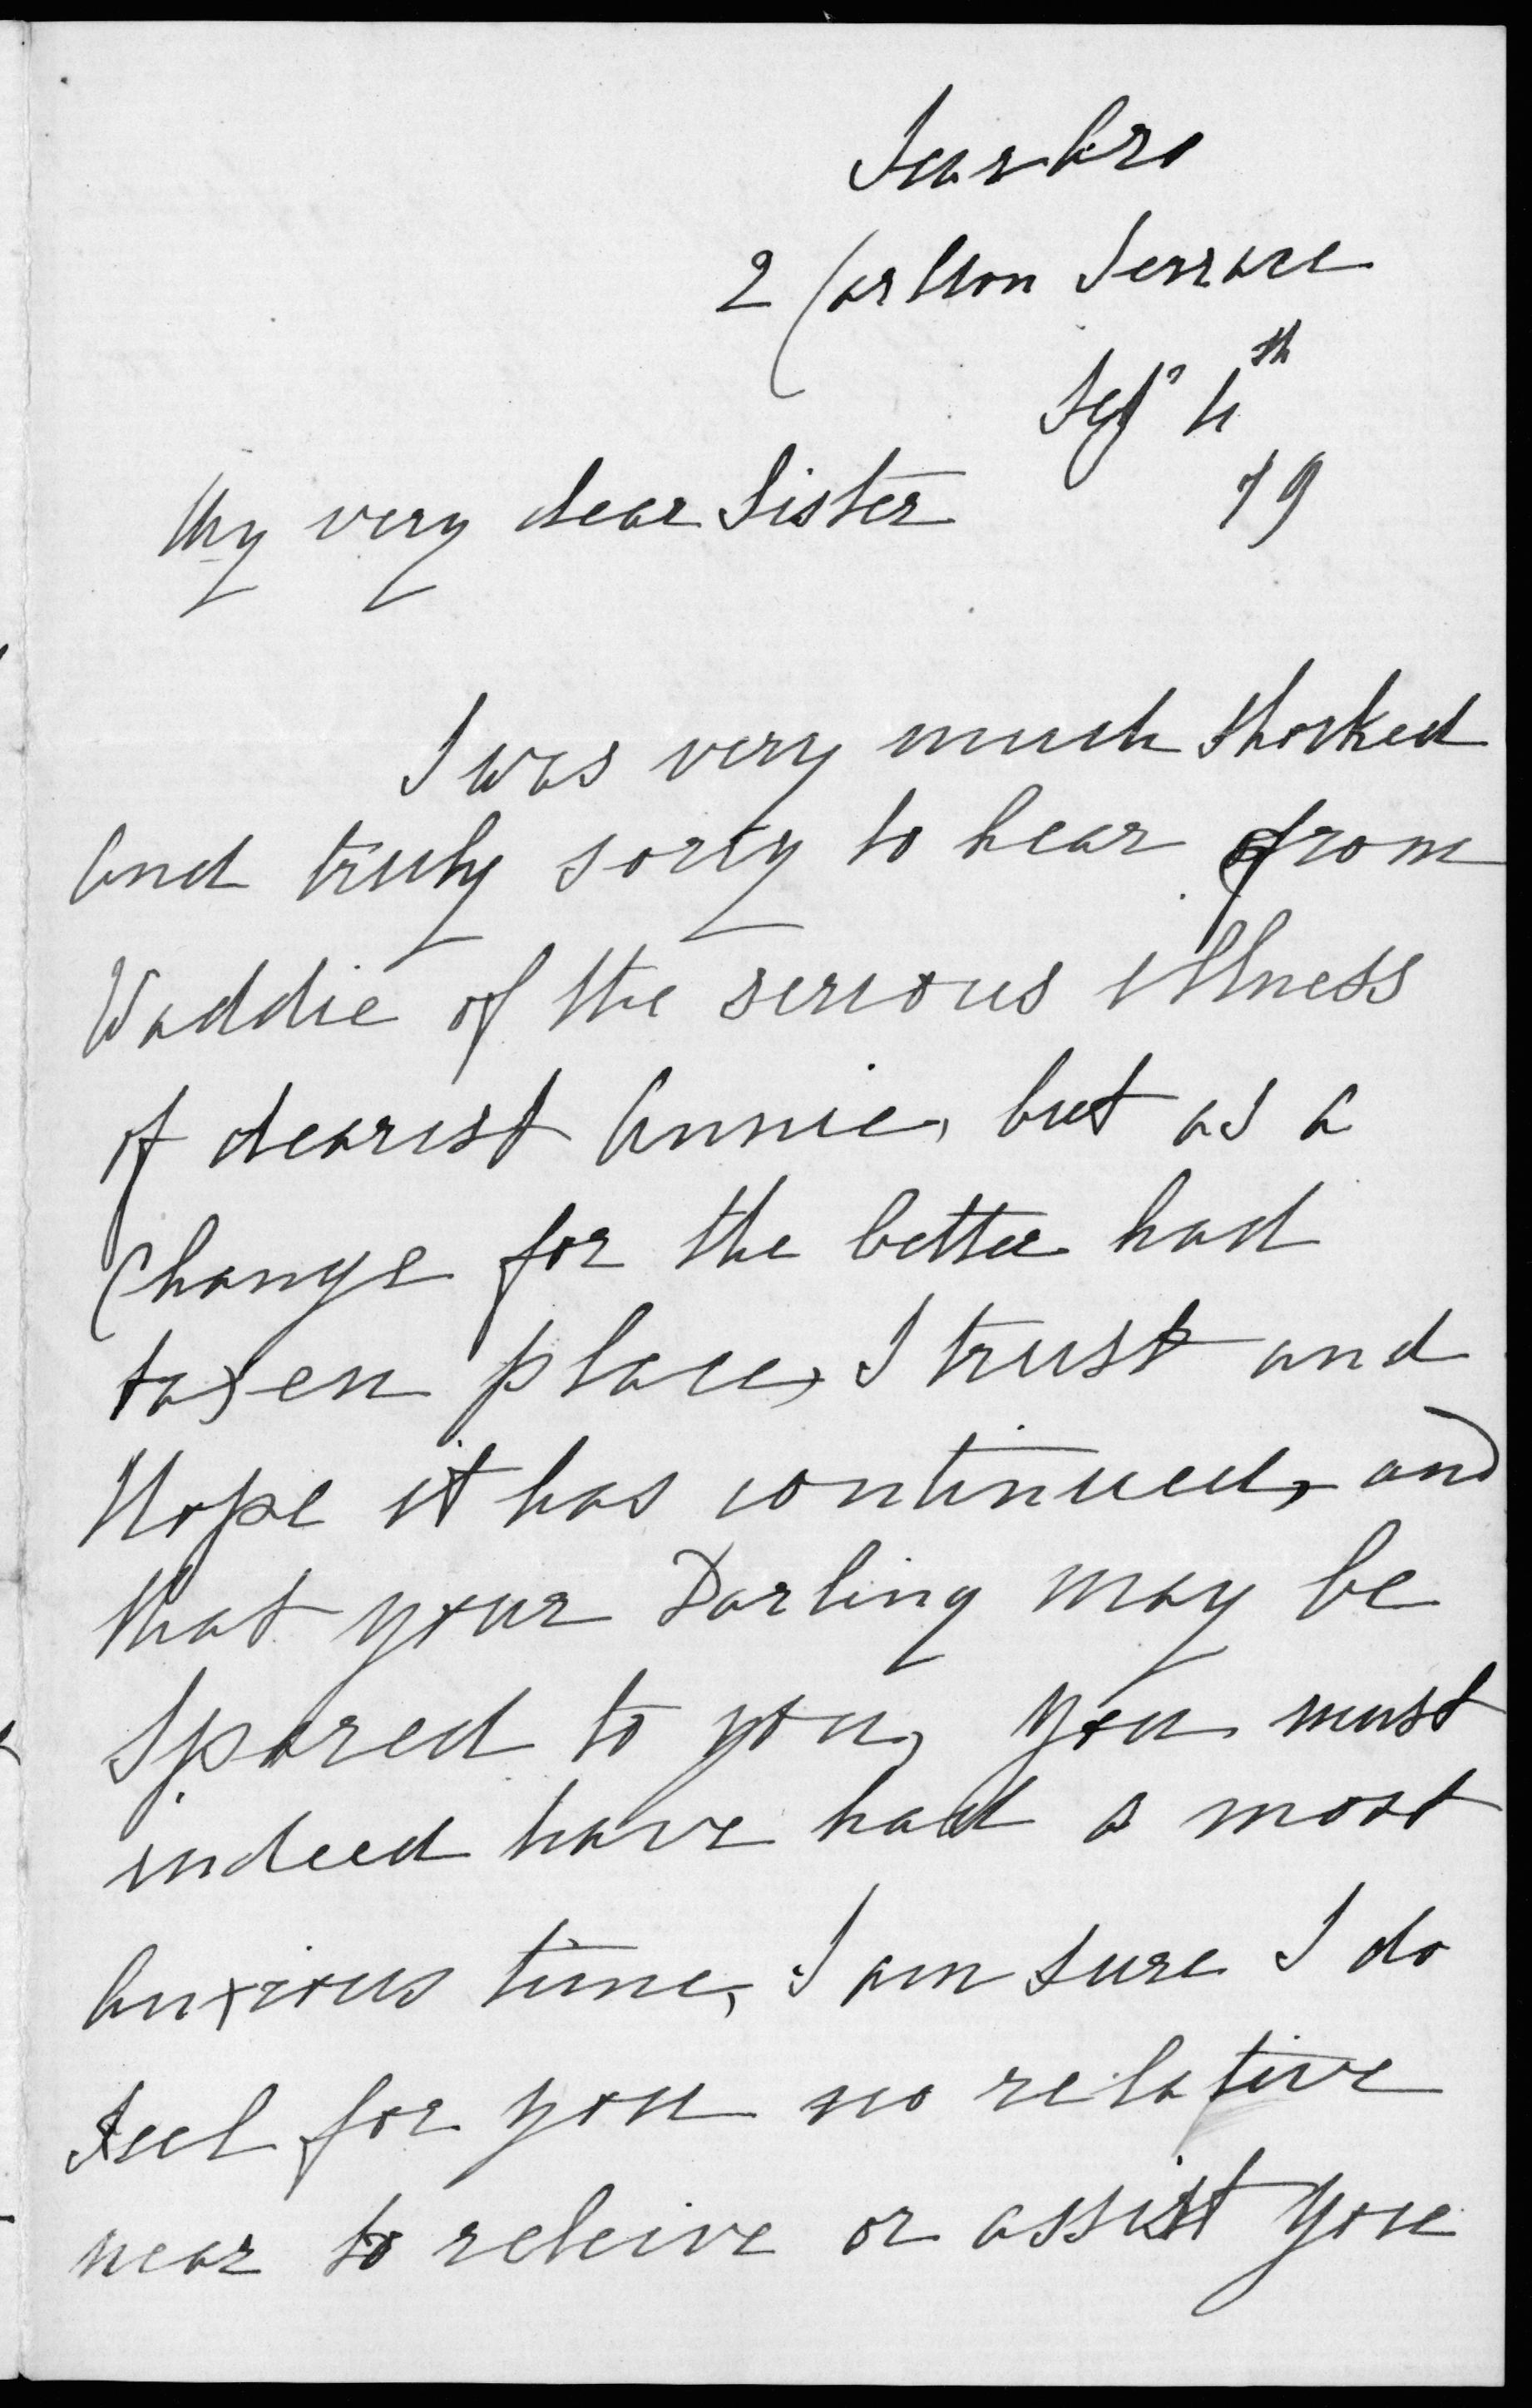 Scarbro
2 Carlton Terrace
Sep' 4th
79
My very dear Sister
I was very much shocked
And truly sorry to hear from
Waddie of the serious illness
of dearest Annie, but as a
Change for the better had
taken place, I trust and
Hope it has continued, and
that your Darling may be
Spared to you, you must
indeed have had a most
Anxious time, I am sure I do
feel for you no relative
near to releive or assist you